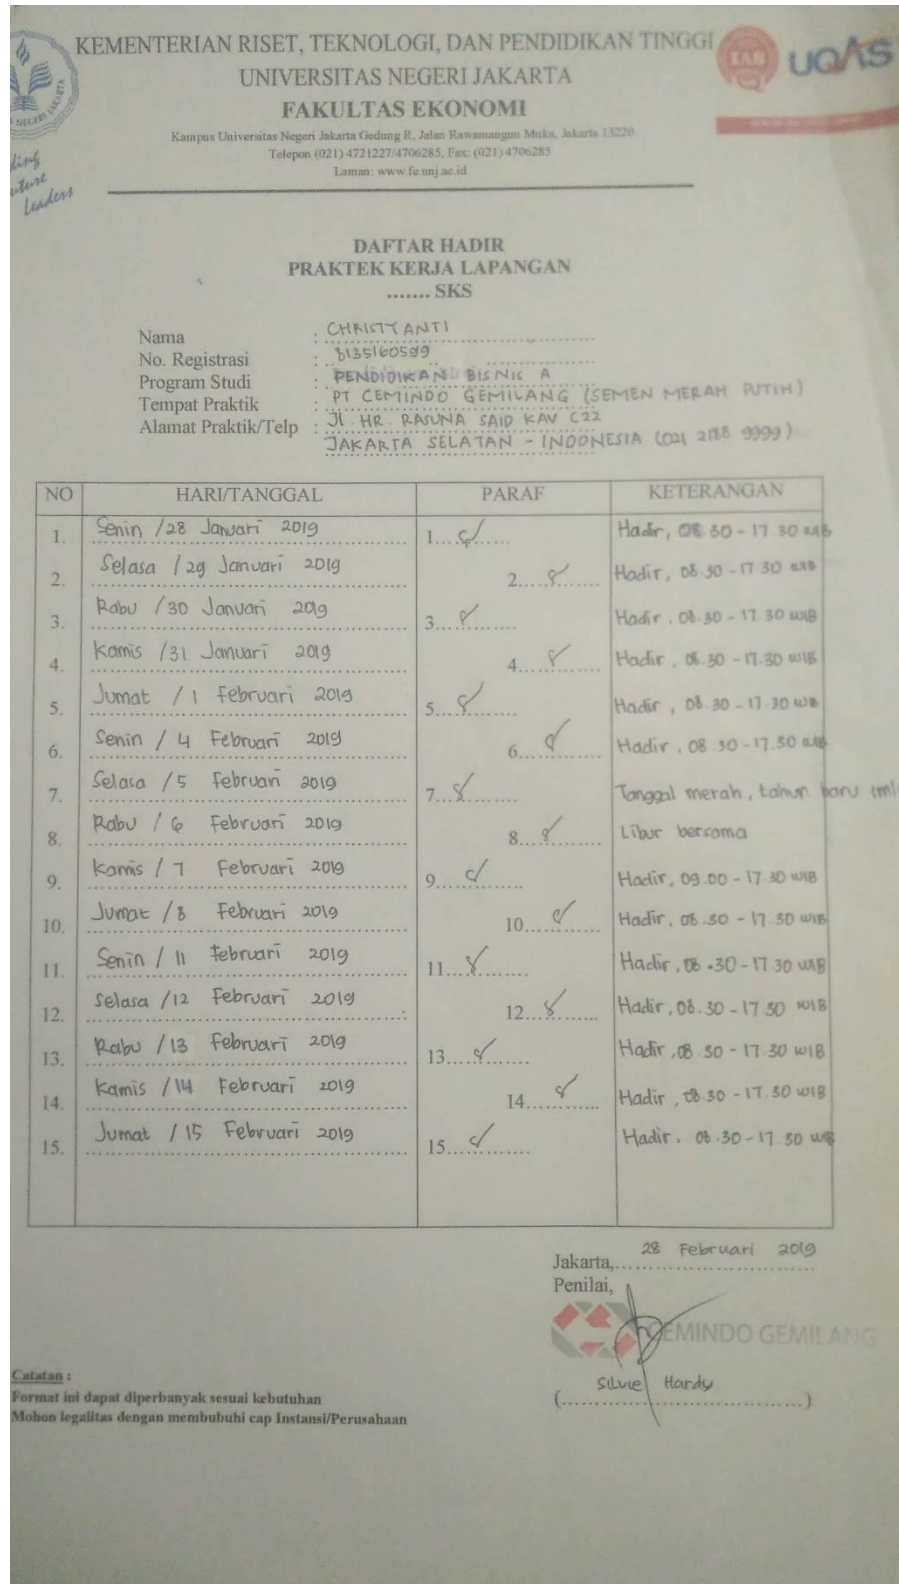 KEMENTERIAN RISET, TEKNOLOGI, DAN PENDIDIKAN TINGGI
UNIVERSITAS NEGERI JAKARTA
FAKULTAS EKONOMI
Kampus Universitas Negeri Jakarta Gedung R, Jalan Rawamangun Muka, Jakarta 13220
Telepon (021) 4721227/4706285, Fax: (021) 4706285
Laman: www.fe.unj.ac.id
IAB UQAS
Leaders
DAFTAR HADIR
PRAKTEK KERJA LAPANGAN
....... SKS
Nama : CHRISTYANTI
No. Registrasi : 8135160599
Program Studi : PENDIDIKAN BISNIS A
Tempat Praktik : PT CEMINDO GEMILANG (SEMEN MERAH PUTIH)
Alamat Praktik/Telp : Jl. HR. RASUNA SAID KAV C22
JAKARTA SELATAN - INDONESIA (021 2188 9999)
NO HARI/TANGGAL PARAF KETERANGAN
1. Senin /28 Januari 2019 1. Hadir, 08.30 - 17.30 WIB
2. Selasa /29 Januari 2019 2. Hadir, 08.30 - 17.30 WIB
3. Rabu /30 Januari 2019 3. Hadir, 08.30 - 17.30 WIB
4. Kamis /31 Januari 2019 4. Hadir, 08.30 - 17.30 WIB
5. Jumat / 1 Februari 2019 5. Hadir, 08.30 - 17.30 WIB
6. Senin / 4 Februari 2019 6. Hadir, 08.30 - 17.30 WIB
7. Selasa / 5 Februari 2019 7. Tanggal merah, tahun baru iml
8. Rabu / 6 Februari 2019 8. Libur bersama
9. Kamis / 7 Februari 2019 9. Hadir, 09.00 - 17.30 WIB
10. Jumat / 8 Februari 2019 10. Hadir, 08.30 - 17.30 WIB
11. Senin / 11 Februari 2019 11. Hadir, 08.30 - 17.30 WIB
12. Selasa /12 Februari 2019 12. Hadir, 08.30 - 17.30 WIB
13. Rabu /13 Februari 2019 13. Hadir, 08.30 - 17.30 WIB
14. Kamis /14 Februari 2019 14. Hadir, 08.30 - 17.30 WIB
15. Jumat /15 Februari 2019 15. Hadir, 08.30 - 17.30 WIB
Jakarta, 28 Februari 2019
Penilai,
CEMINDO GEMILANG
Silvie Hardy
Catatan :
Format ini dapat diperbanyak sesuai kebutuhan
Mohon legalitas dengan membubuhi cap Instansi/Perusahaan